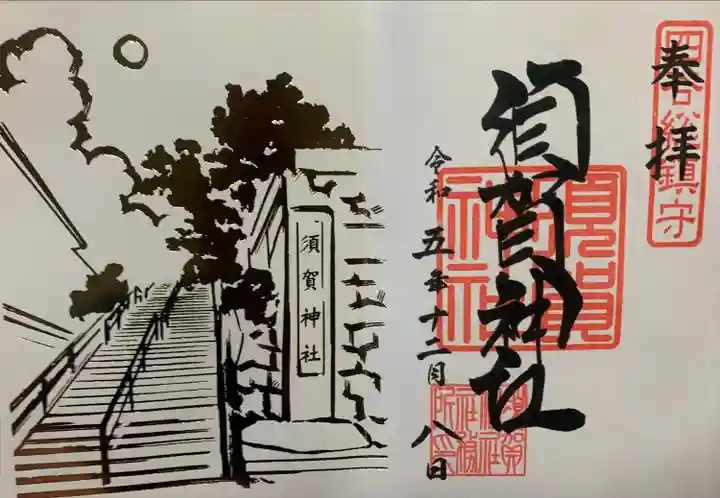 四谷総鎮守
奉拝
須賀神社
須賀神社
令和五年十二月八日
須賀神社